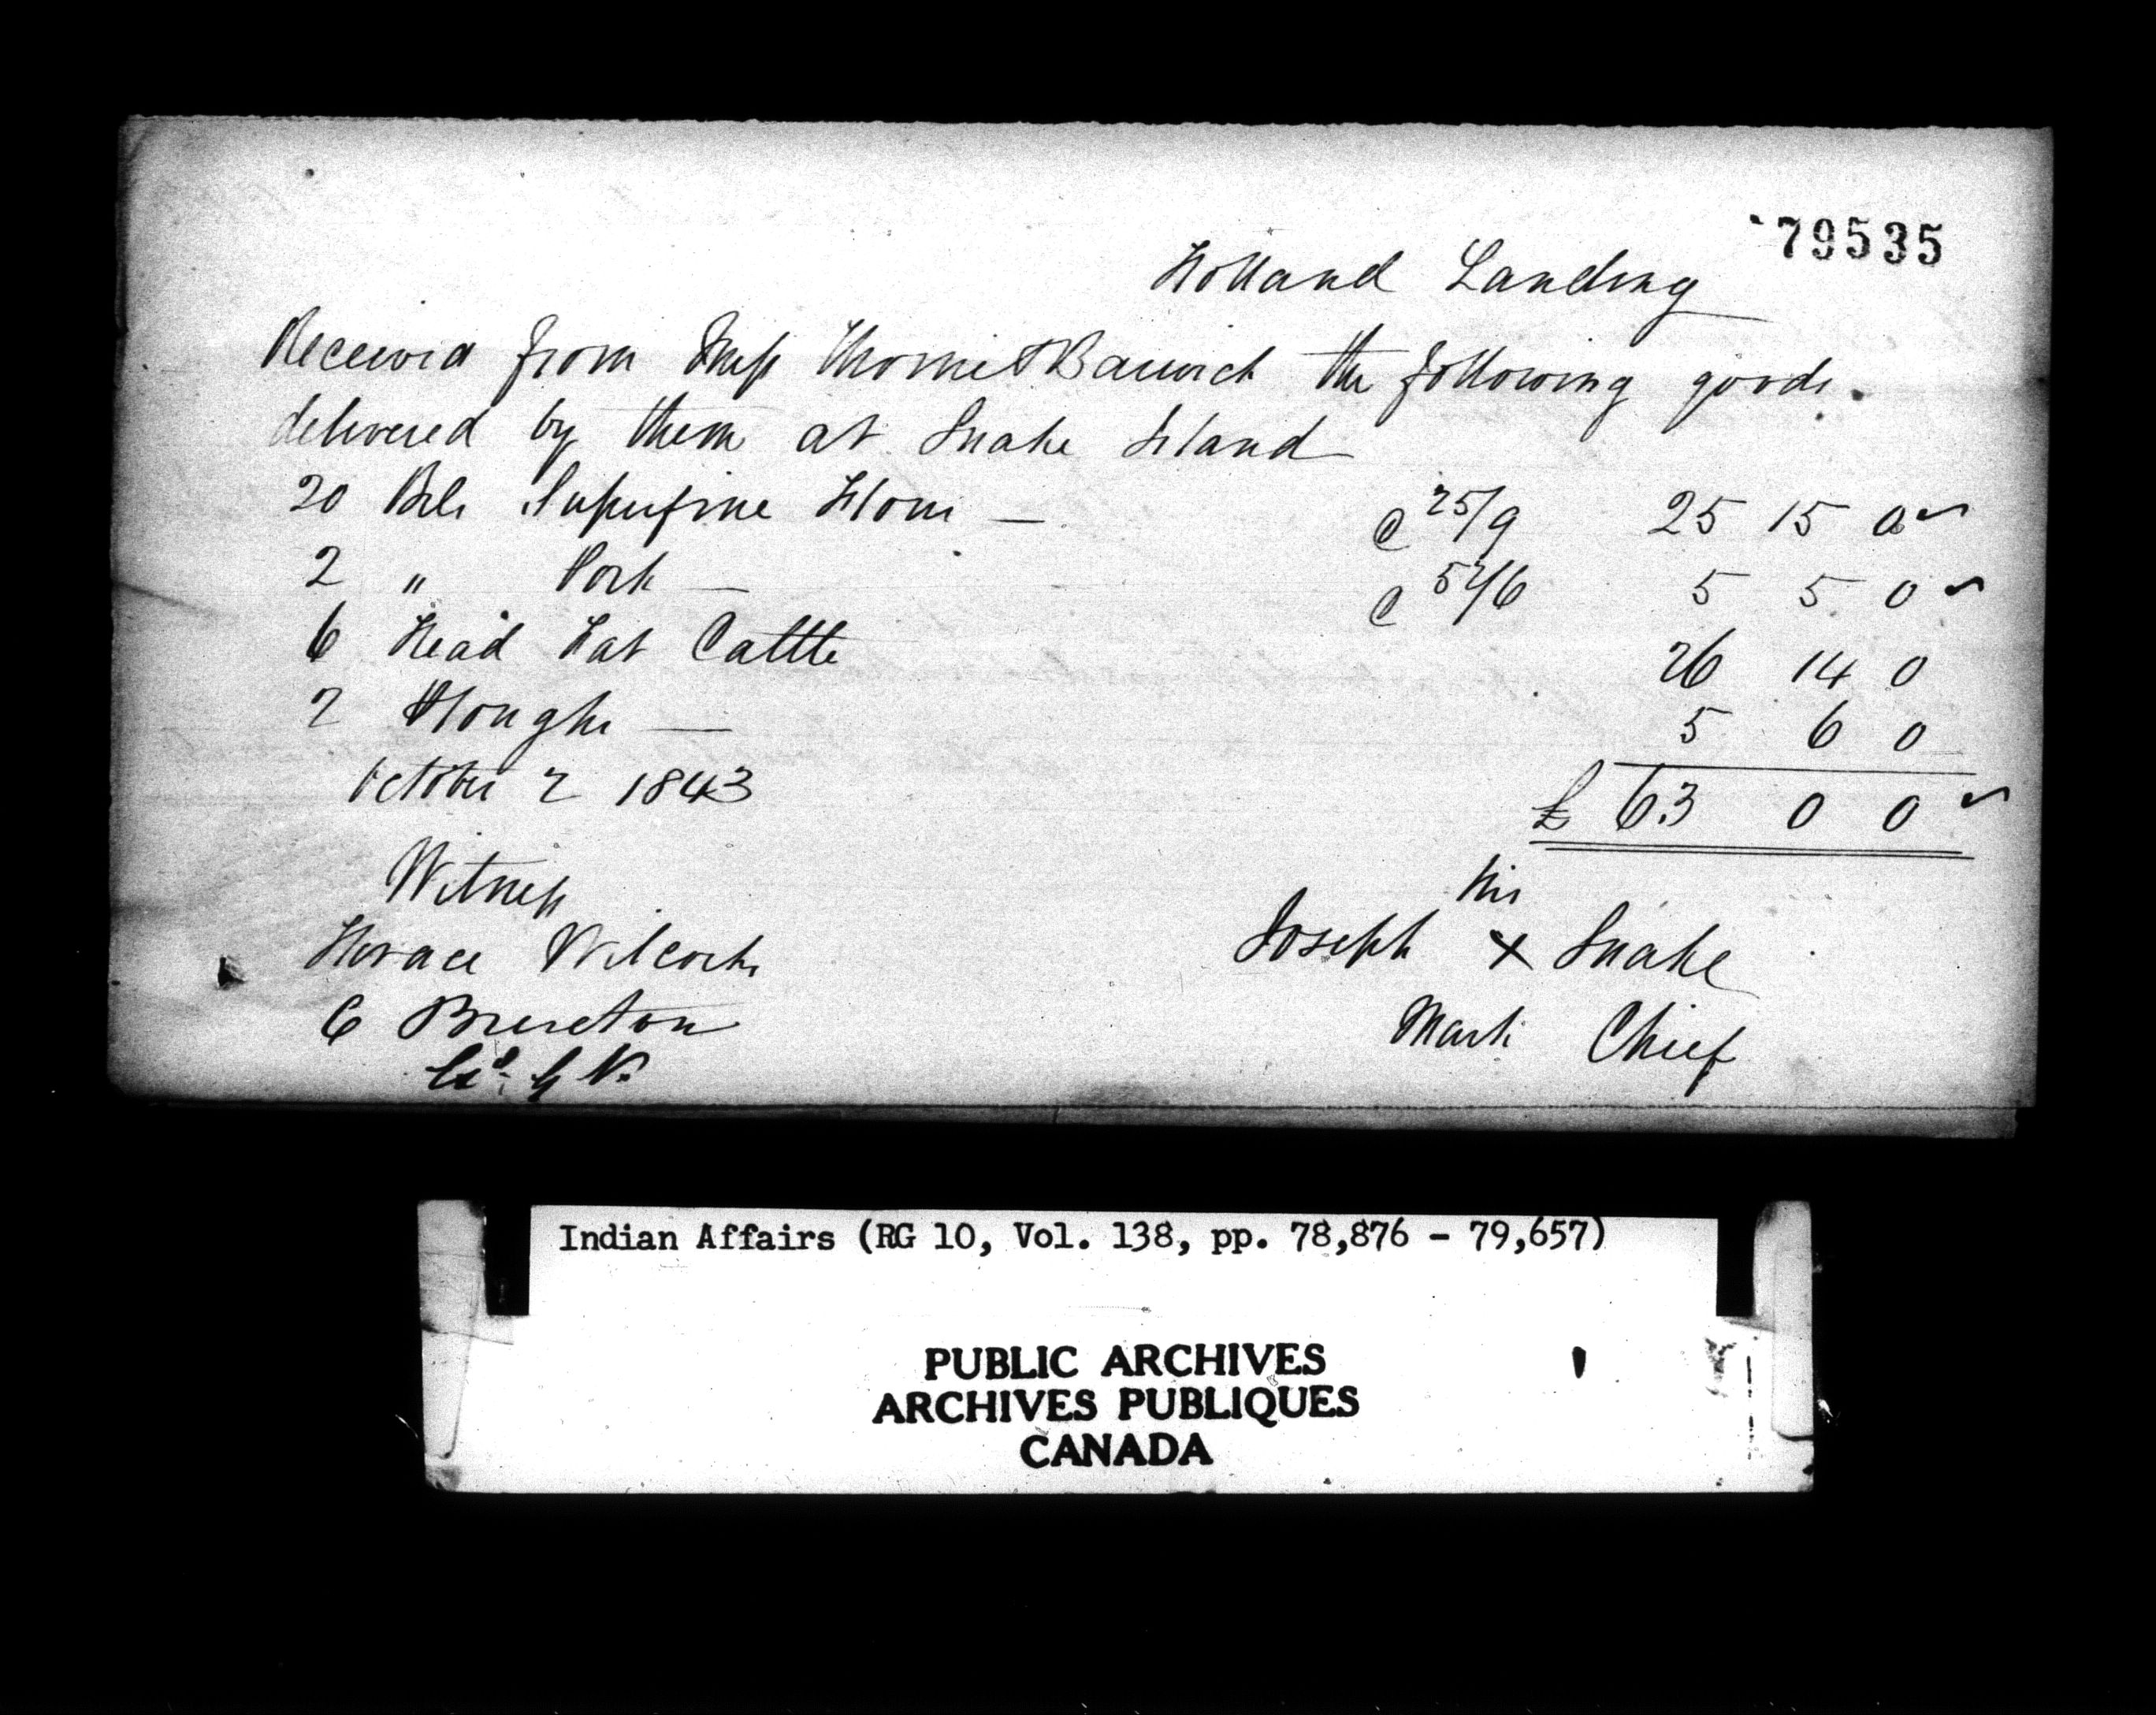 79535
Holland Landing
Received from Mess Thorne & Barwick the following goods
delivered by them at Snake Island
20 Bls Superfine Flour — @ 25/9 25 15 0
2 " Pork — @ 52/6 5 5 0
6 Head Fat Cattle 26 14 0
2 Ploughs — 5 6 0
October 2 1843 £ 63 0 0
Witness
his
Horace Wilcocks Joseph X Snake
C Brereton Mark Chief
Indian Affairs (RG 10, Vol. 138, pp. 78,876 - 79,657)
PUBLIC ARCHIVES
ARCHIVES PUBLIQUES
CANADA